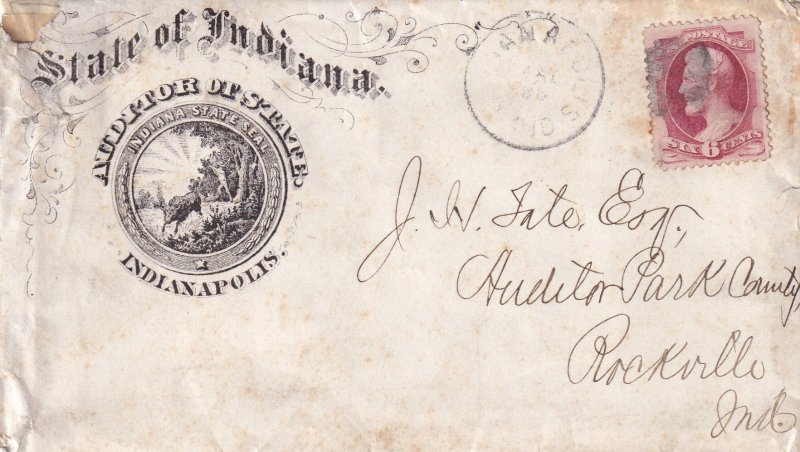 State of Indiana.
AUDITOR OF STATE
INDIANA STATE SEAL
INDIANAPOLIS.
IND
POSTAGE
SIX 6 CENTS
J. H. Tate, Esq,
Auditor Park County
Rockville
Ind.